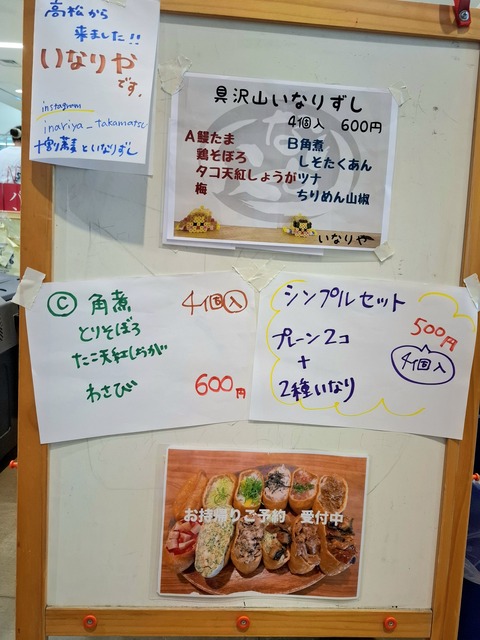 高松から
来ました!!
いなりや
です。
instagram
inariya_takamatsu
十割蕎麦といなりずし
具沢山いなりずし
4個入 600円
A鰻たま
鶏そぼろ
タコ天紅しょうが
梅
B角煮
しそたくあん
ツナ
ちりめん山椒
いなりや
Ⓒ 角煮 4個入
とりそぼろ
たこ天紅しょうが
わさび
600円
シンプルセット
500円
プレーン2コ
4個入
+
2種いなり
お持帰りご予約 受付中